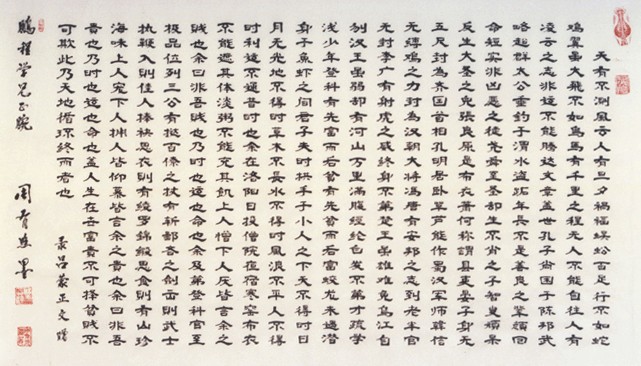 天有不测风云人有旦夕祸福蜈蚣百足行不如蛇
鸡翼虽大飞不如鸟马有千里之程无人不能自往人有
凌云之志非运不能腾达文章盖世孔子尚困于陈邦武
略超群太公垂钓于渭水盗跖年长不是善良之辈颜回
命短实非凶恶之徒尧舜至圣却生不肖之子瞽叟顽呆
反生大圣之儿张良原是布衣萧何称谓县吏晏子身无
五尺封为齐国首相孔明居卧草庐能作蜀汉军师韩信
无缚鸡之力封为汉朝大将冯唐有安邦之志到老半官
无封李广有射虎之威终身不第楚王虽雄难免乌江自
刎汉王虽弱却有河山万里满腹经纶白发不第才疏学
浅少年登科有先富而后贫有先贫而后富蛟龙未遇潜
身于鱼虾之间君子失时拱手于小人之下天不得时日
月无光地不得时草木不长水不得时风浪不平人不得
时利运不通昔时也余在洛阳日投僧院夜宿寒窑布衣
不能遮其体淡粥不能充其饥上人憎下人厌皆言余之
贱也余曰非吾贱也乃时也运也命也余及第登科官至
极品位列三公有挞百僚之杖有斩鄙吝之剑出则武士
执鞭入则佳人捧袂思衣则有绫罗锦缎思食则有山珍
海味上人宠下人拥人皆仰慕皆言余之贵也余曰非吾
贵也乃时也运也命也盖人生在世富贵不可捧贫贱不
可欺此乃天地循环终而者也 录吕蒙正文赠
鹏程学兄正腕 周有 墨